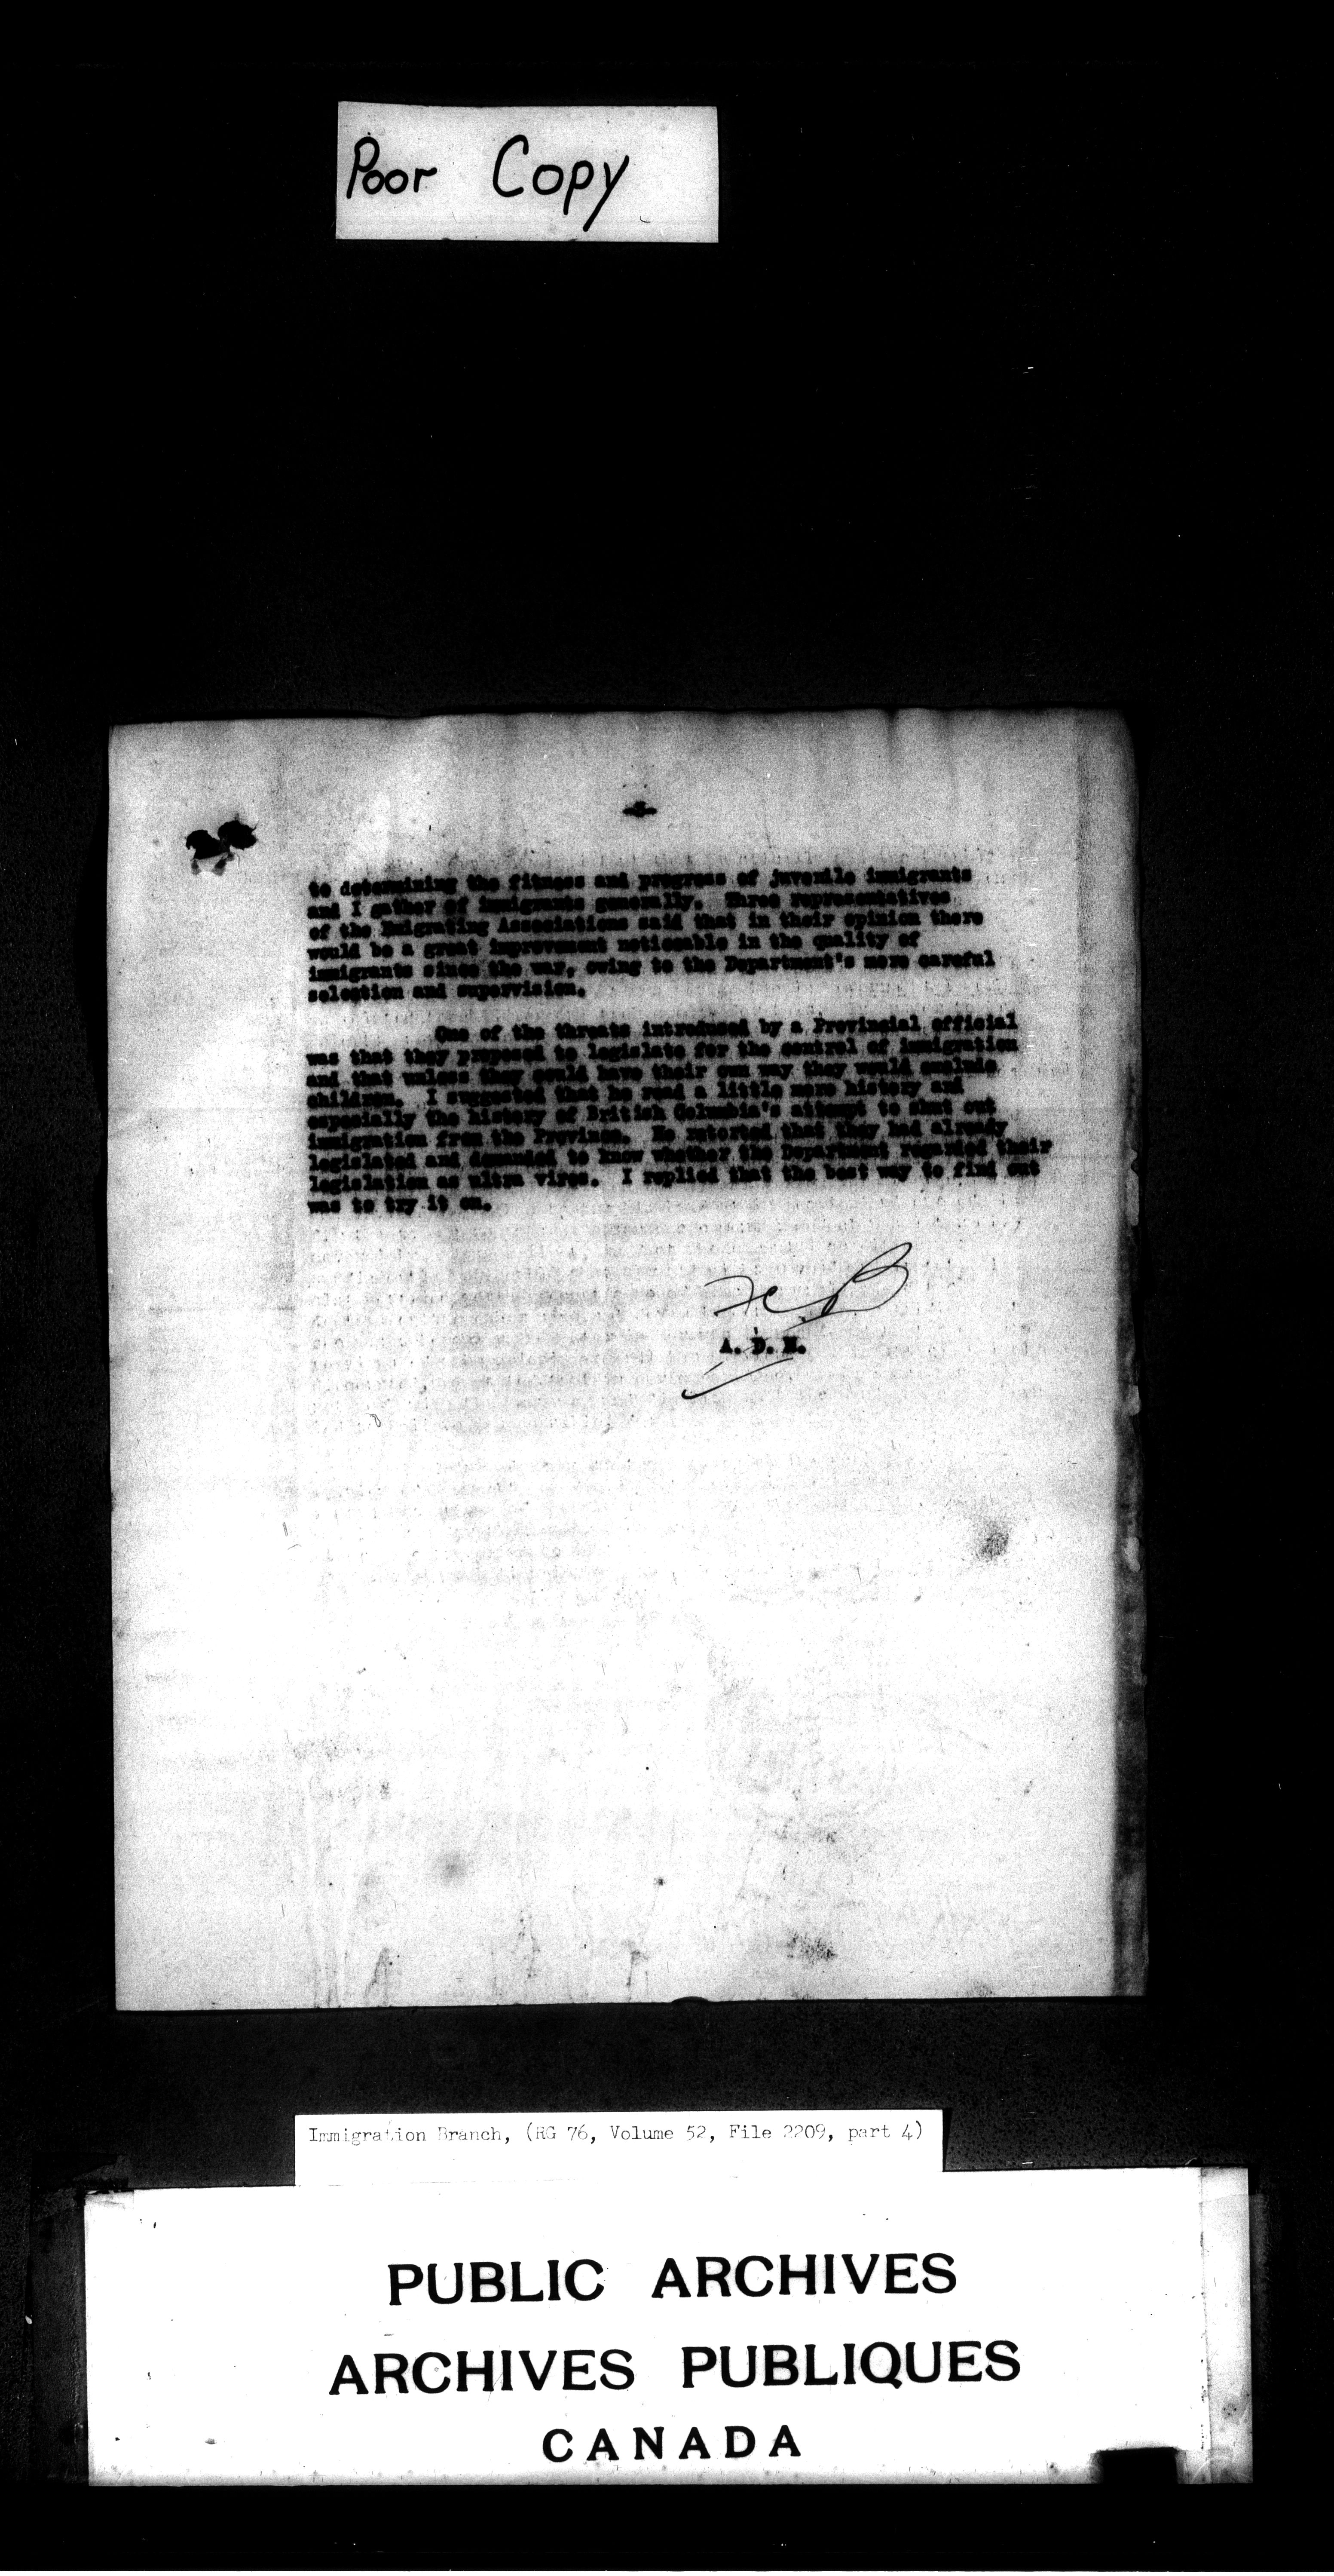 Poor Copy
to determining the fitness and progress of juvenile immigrants
and I gather of immigrants generally. Three representatives
of the Emigrating Associations said that in their opinion there
would be a great improvement noticeable in the quality of
immigrants since the war, owing to the Department's more careful
selection and supervision.
One of the threats introduced by a Provincial official
was that they proposed to legislate for the control of immigration
and that unless they could have their own way they would exclude
children. I suggested that he read a little more history and
especially the history of British Columbia's attempt to shut out
immigration from the Province. He retorted that they had already
legislated and demanded to know whether the Department regarded their
legislation as ultra vires. I replied that the best way to find out
was to try it on.
A. D. M.
Immigration Branch, (RG 76, Volume 52, File 2209, part 4)
PUBLIC ARCHIVES
ARCHIVES PUBLIQUES
CANADA